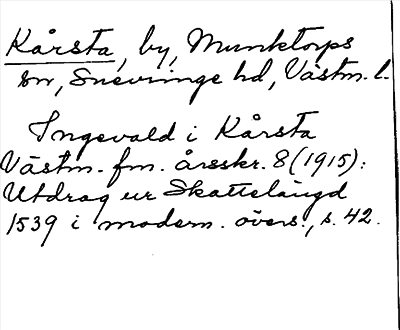 Kårsta, by, Munktorps
sn, Snevringe hd, Västm. l.
Ingevald i Kårsta
Västm. fm. årsskr. 8 (1915):
Utdrag ur Skattelängd
1539 i modern. övers., s. 42.